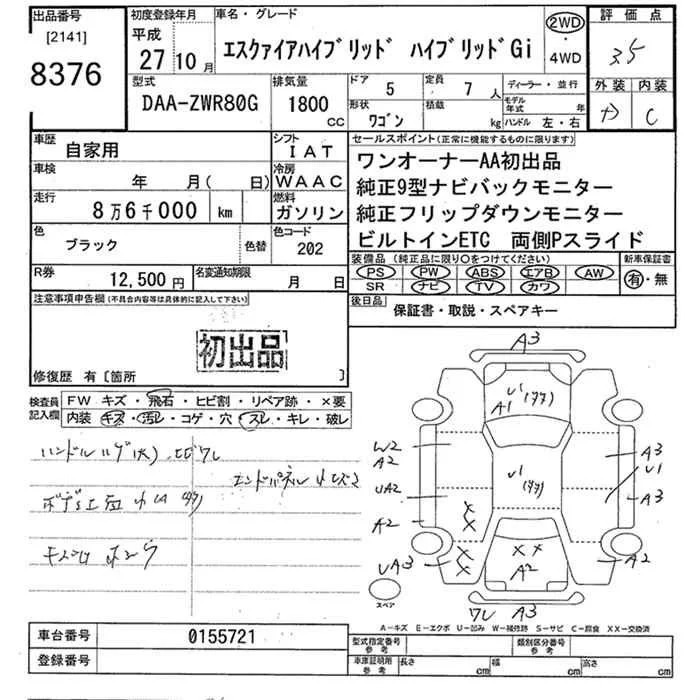 出品番号
[2141]
8376
初度登録年月
平成
27 10月
車名・グレード
エスクァイアハイブリッド ハイブリッドGi
2WD
・
4WD
評価点
35
外装 内装
C
型式
DAA-ZWR80G
排気量
1800 CC
ドア 5
定員 7人
ディーラー・並行
形状 ワゴン
積載 kg
モデル年式 年
ハンドル 左・右
車歴 自家用
シフト IAT
車検 年 月( 日)
冷房 WAAC
走行 8万6千000 km
燃料 ガソリン
色 ブラック 色替
色コード 202
R券 12,500円
名変通知期限 月 日
セールスポイント(正常に機能するものに限ります)
ワンオーナーAA初出品
純正9型ナビバックモニター
純正フリップダウンモニター
ビルトインETC 両側Pスライド
装備品 (純正品に限り○をつけてください)
PS PW ABS エアB AW
SR ナビ TV カワ
新車保証書
有・無
後日品 保証書・取説・スペアキー
注意事項申告欄(不具合内容等は具体的に記入して下さい)
初出品
修復歴 有〔箇所 〕
検査員記入欄
FW キズ・飛石・ヒビ割・リペア跡・×要
内装 キズ・汚レ・コゲ・穴・スレ・キレ・破レ
A3
U1
A1
W2
A2
UA2
A2
UA3
U1
A3
U1
A3
A2
XX
A2
ワレ A3
スペア
A-キズ E-エクボ U-凹み W-補修跡 S-サビ C-腐食 XX-交換済
車台番号 0155721
登録番号
型式指定番号 参考
類別区分番号 参考
車庫証明用 参考
長さ cm 幅 cm 高さ cm